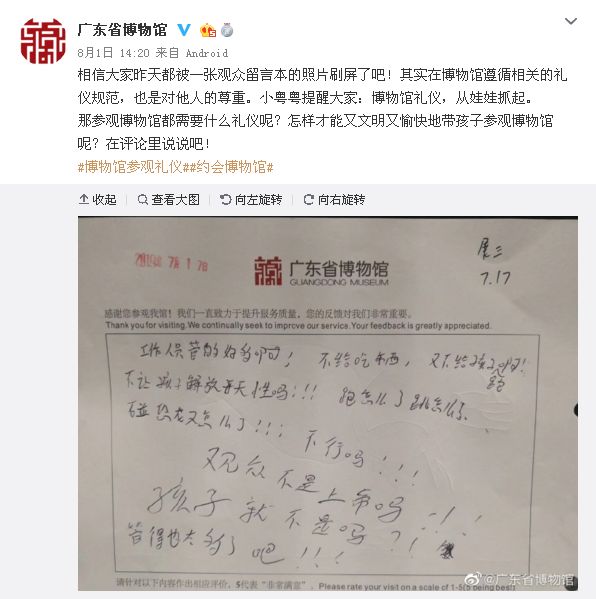 广东省博物馆
8月1日 14:20 来自 Android
相信大家昨天都被一张观众留言本的照片刷屏了吧！其实在博物馆遵循相关的礼
仪规范，也是对他人的尊重。小粤粤提醒大家：博物馆礼仪，从娃娃抓起。
那参观博物馆都需要什么礼仪呢？怎样才能又文明又愉快地带孩子参观博物馆
呢？在评论里说说吧！
#博物馆参观礼仪##约会博物馆#
收起 查看大图 向左旋转 向右旋转
展三
7.17
广东省博物馆
GUANGDONG MUSEUM
感谢您参观我馆！我们一直致力于提升服务质量，您的反馈对我们非常重要。
Thank you for visiting. We continually seek to improve our service. Your feedback is greatly appreciated.
工作人员管的好多啊！不给吃东西，又不给孩子跑啊！
不让孩子解放天性吗！！！跑怎么了跳怎么了
碰恐龙又怎么了！！！
不行吗！！！
观众不是上帝吗！！！
孩子就不是吗？！！
管得也太多了吧！！！
@广东省博物馆
请针对以下内容作出相应评价，5代表“非常满意”。Please rate your visit on a scale of 1-5(5 being best)